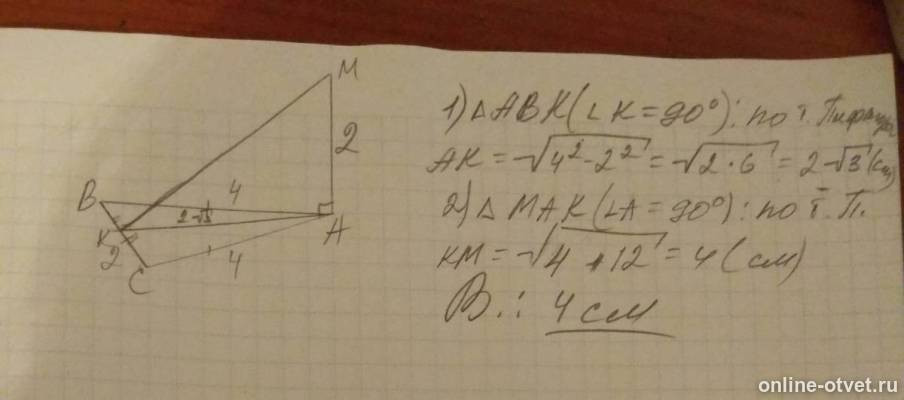 M
2
B
4
2√3
K
A
2
4
C
1) △ABK(∠K=90°): по т. Пифагора
AK = √4²-2² = √2·6 = 2√3 (см)
2) △MAK(∠A=90°): по т. П.
KM = √4+12 = 4 (см)
В.: 4 см
online-otvet.ru